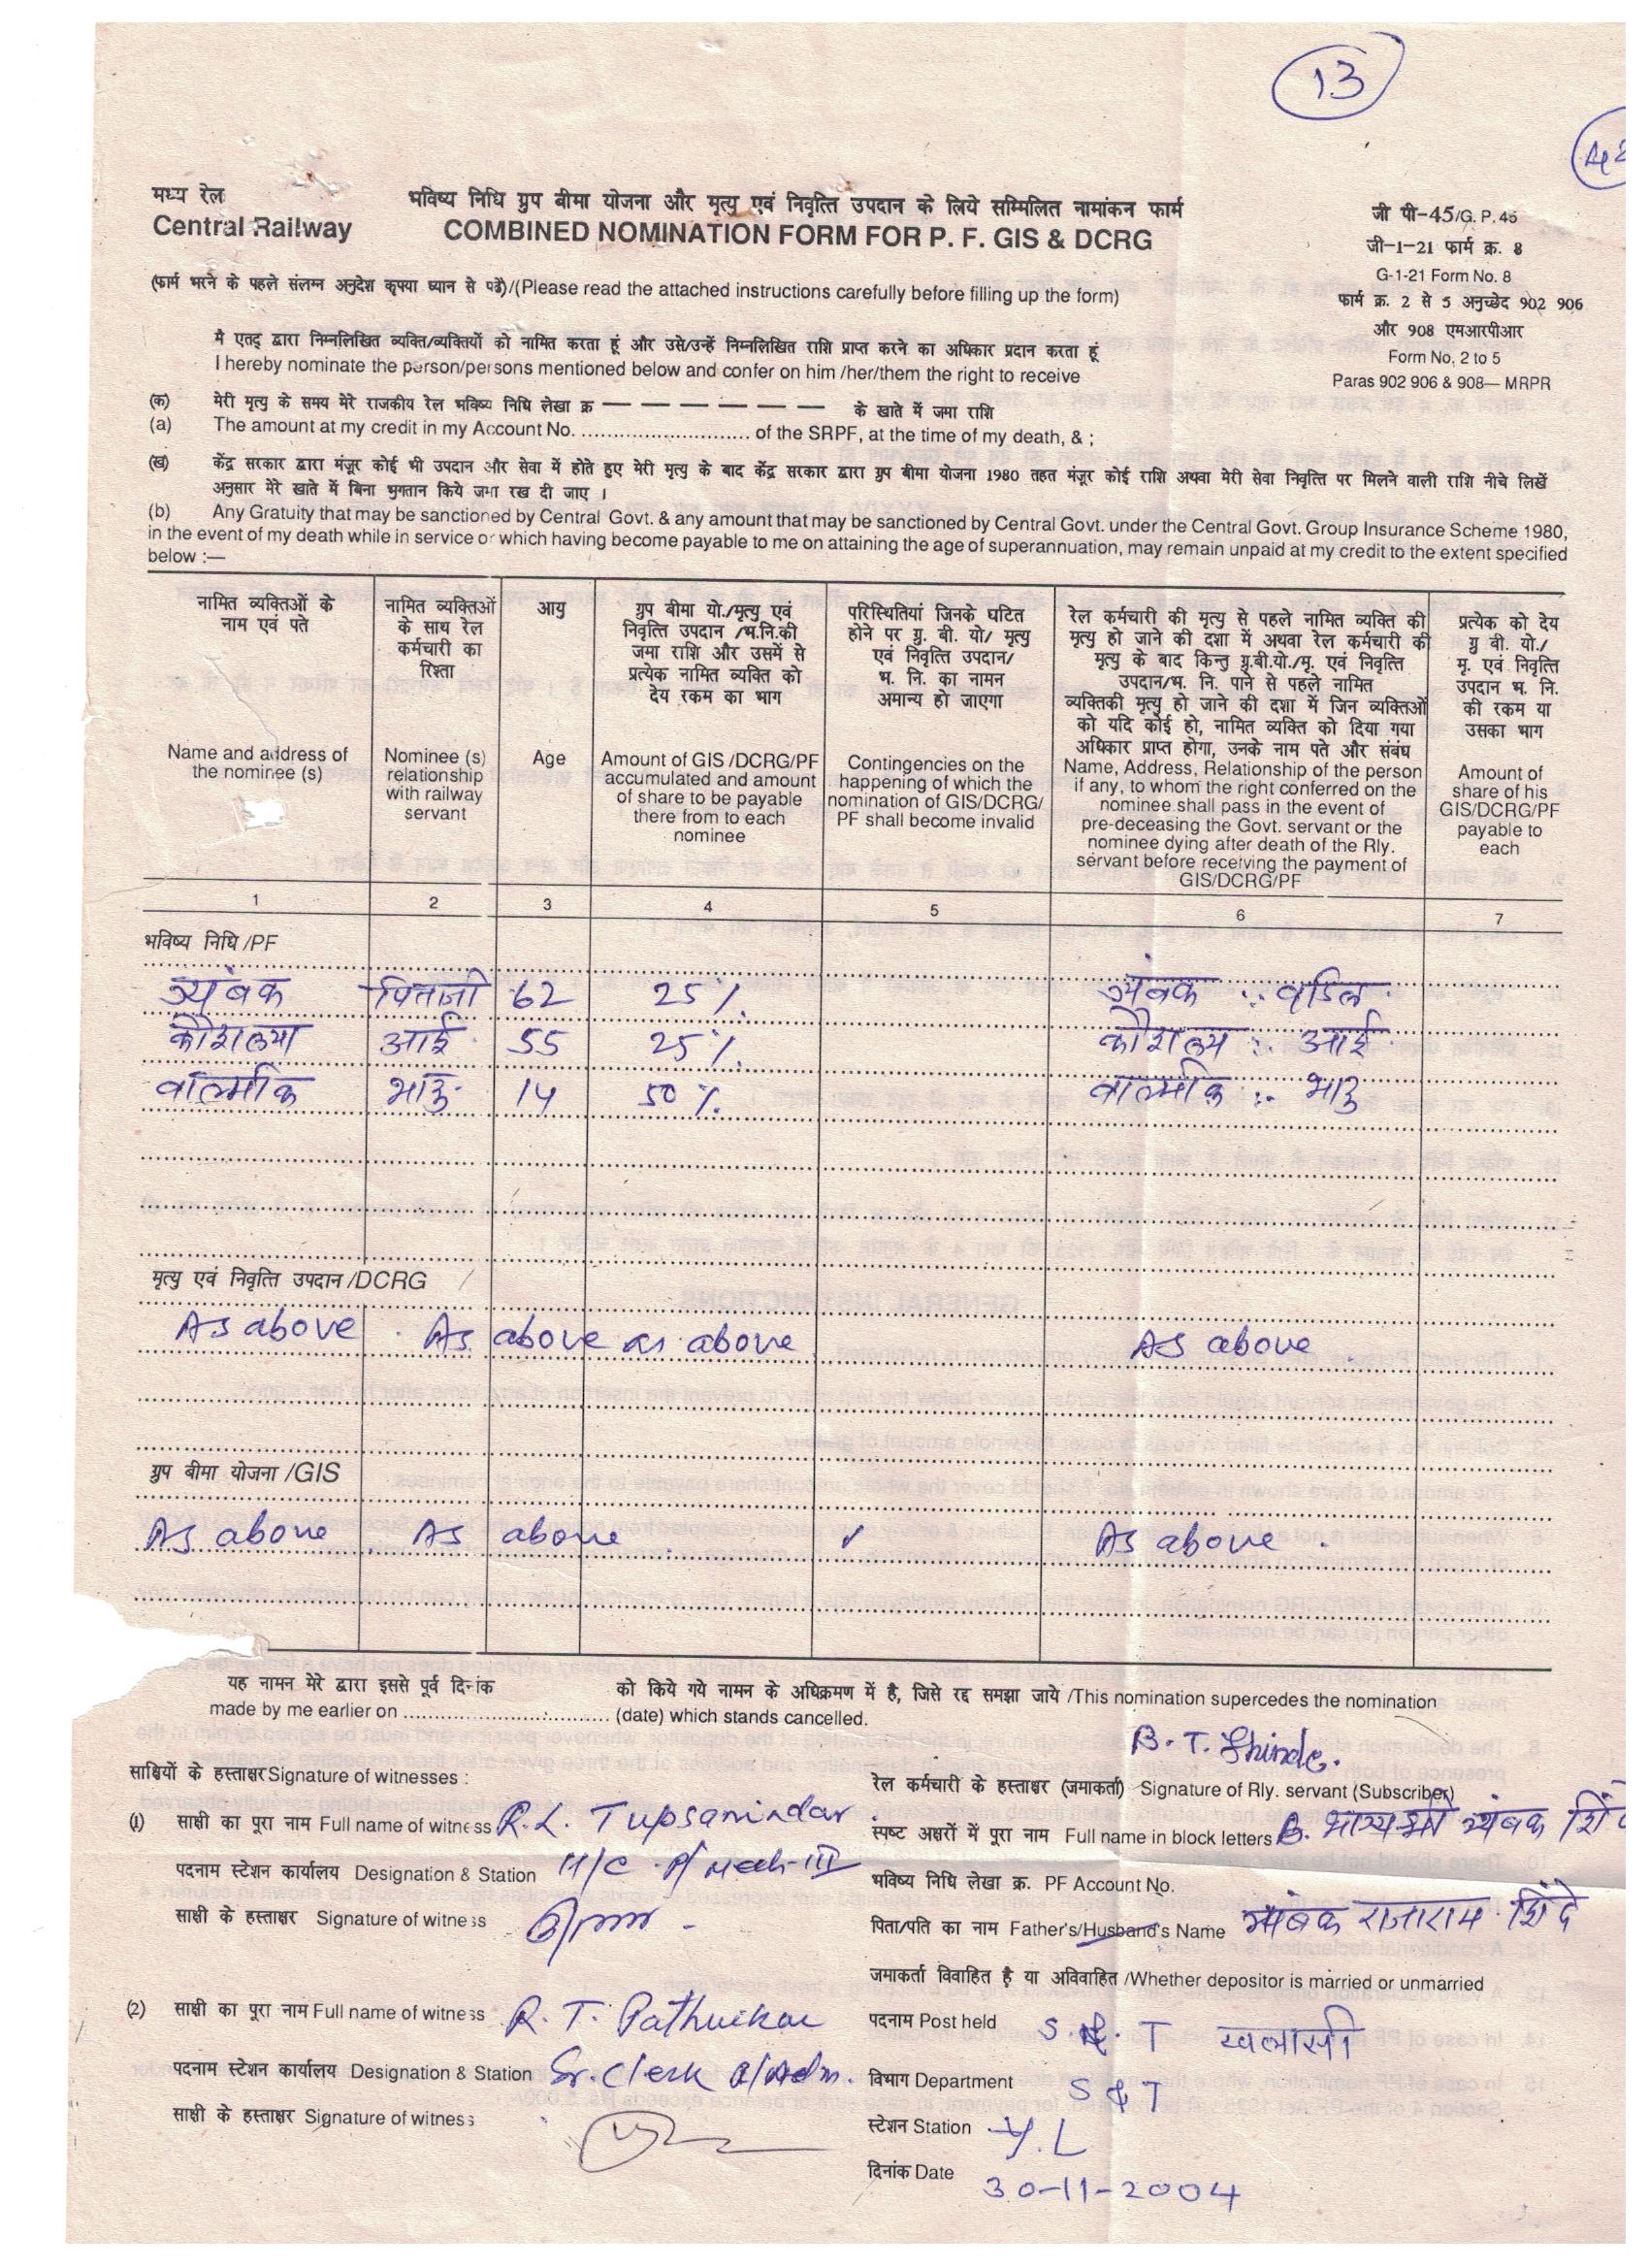 13
मध्य रेल
Central Railway
भविष्य निधि ग्रुप बीमा योजना और मृत्यु एवं निवृत्ति उपदान के लिये सम्मिलित नामांकन फार्म
COMBINED NOMINATION FORM FOR P. F. GIS & DCRG
जी पी-45/G. P. 45
जी-1-21 फार्म क्र. 8
G-1-21 Form No. 8
फार्म क्र. 2 से 5 अनुच्छेद 902 906
और 908 एमआरपीआर
Form No, 2 to 5
Paras 902 906 & 908— MRPR
(फार्म भरने के पहले संलग्न अनुदेश कृपया ध्यान से पढें)/(Please read the attached instructions carefully before filling up the form)
मै एतद् द्वारा निम्नलिखित व्यक्ति/व्यक्तियों को नामित करता हूं और उसे/उन्हें निम्नलिखित राशि प्राप्त करने का अधिकार प्रदान करता हूं
I hereby nominate the person/persons mentioned below and confer on him /her/them the right to receive
(क) मेरी मृत्यु के समय मेरे राजकीय रेल भविष्य निधि लेखा क्र — — — — — — — के खाते में जमा राशि
(a) The amount at my credit in my Account No. ............................ of the SRPF, at the time of my death, & ;
(ख) केंद्र सरकार द्वारा मंजूर कोई भी उपदान और सेवा में होते हुए मेरी मृत्यु के बाद केंद्र सरकार द्वारा ग्रुप बीमा योजना 1980 तहत मंजूर कोई राशि अथवा मेरी सेवा निवृत्ति पर मिलने वाली राशि नीचे लिखें
अनुसार मेरे खाते में बिना भुगतान किये जमा रख दी जाए ।
(b) Any Gratuity that may be sanctioned by Central Govt. & any amount that may be sanctioned by Central Govt. under the Central Govt. Group Insurance Scheme 1980,
in the event of my death while in service or which having become payable to me on attaining the age of superannuation, may remain unpaid at my credit to the extent specified
below :—
नामित व्यक्तिओं के
नाम एवं पते
Name and address of
the nominee (s)
नामित व्यक्तिओं
के साथ रेल
कर्मचारी का
रिश्ता
Nominee (s)
relationship
with railway
servant
आयु
Age
ग्रुप बीमा यो./मृत्यु एवं
निवृत्ति उपदान /भ.नि.की
जमा राशि और उसमें से
प्रत्येक नामित व्यक्ति को
देय रकम का भाग
Amount of GIS /DCRG/PF
accumulated and amount
of share to be payable
there from to each
nominee
परिस्थितियां जिनके घटित
होने पर ग्रु. बी. यो/ मृत्यु
एवं निवृत्ति उपदान/
भ. नि. का नामन
अमान्य हो जाएगा
Contingencies on the
happening of which the
nomination of GIS/DCRG/
PF shall become invalid
रेल कर्मचारी की मृत्यु से पहले नामित व्यक्ति की
मृत्यु हो जाने की दशा में अथवा रेल कर्मचारी की
मृत्यु के बाद किन्तु ग्रु.बी.यो./मृ. एवं निवृत्ति
उपदान/भ. नि. पाने से पहले नामित
व्यक्तिकी मृत्यु हो जाने की दशा में जिन व्यक्तिओं
को यदि कोई हो, नामित व्यक्ति को दिया गया
अधिकार प्राप्त होगा, उनके नाम पते और संबंध
Name, Address, Relationship of the person
if any, to whom the right conferred on the
nominee shall pass in the event of
pre-deceasing the Govt. servant or the
nominee dying after death of the Rly.
servant before receiving the payment of
GIS/DCRG/PF
प्रत्येक को देय
ग्रु बी. यो./
मृ. एवं निवृत्ति
उपदान भ. नि.
की रकम या
उसका भाग
Amount of
share of his
GIS/DCRG/PF
payable to
each
1 2 3 4 5 6 7
भविष्य निधि /PF
त्र्यंबक पिताजी 62 25 % त्र्यंबक :- वडिल
कौशल्या आई 55 25 % कौशल्य :- आई
वाल्मीक भाऊ 14 50 % वाल्मीक :- भाऊ
मृत्यु एवं निवृत्ति उपदान /DCRG
As above As above as above As above
ग्रुप बीमा योजना /GIS
As above As above ✓ As above
यह नामन मेरे द्वारा इससे पूर्व दिनांक को किये गये नामन के अधिक्रमण में है, जिसे रद्द समझा जाये /This nomination supercedes the nomination
made by me earlier on ................................... (date) which stands cancelled.
B. T. Shinde.
साक्षियों के हस्ताक्षर Signature of witnesses :
रेल कर्मचारी के हस्ताक्षर (जमाकर्ता) Signature of Rly. servant (Subscriber)
(1) साक्षी का पूरा नाम Full name of witness R. L. Tupsamindar
स्पष्ट अक्षरों में पूरा नाम Full name in block letters त्र्यंबक शिंदे
पदनाम स्टेशन कार्यालय Designation & Station H/C P/Mech-III
भविष्य निधि लेखा क्र. PF Account No.
साक्षी के हस्ताक्षर Signature of witness
पिता/पति का नाम Father's/Husband's Name त्र्यंबक राजाराम शिंदे
जमाकर्ता विवाहित है या अविवाहित /Whether depositor is married or unmarried
(2) साक्षी का पूरा नाम Full name of witness R. T. Pathuikar
पदनाम Post held S. & T खलासी
पदनाम स्टेशन कार्यालय Designation & Station Sr. Clerk
विभाग Department S & T
साक्षी के हस्ताक्षर Signature of witness
स्टेशन Station Y. L
दिनांक Date 30-11-2004